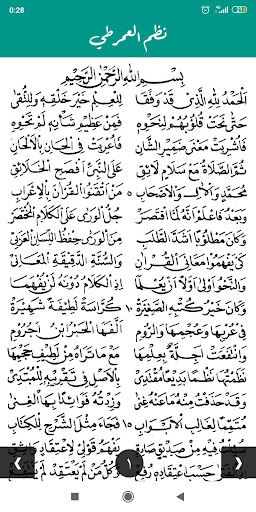 0:28
نظم العمرطي
بِسْمِ اللهِ الرَّحْمٰنِ الرَّحِيْمِ
اَلْحَمْدُ لِلّٰهِ الَّذِي قَدْ وَفَّقَا لِلْعِلْمِ خَيْرَ خَلْقِهِ وَلِلتُّقَى
حَتَّى نَحَتْ قُلُوْبُهُمْ لِنَحْوِهِ فَمِنْ عَظِيْمِ شَأْنِهِ لَمْ تَحْوِهِ
فَأُشْرِبَتْ مَعْنَى ضَمِيْرِ الشَّانِ فَأَعْرَبَتْ فِي الْحَانِ بِالْأَلْحَانِ
ثُمَّ الصَّلَاةُ مَعْ سَلَامٍ لَائِقِ عَلَى النَّبِيِّ أَفْصَحِ الْخَلَائِقِ
مُحَمَّدٍ وَالْآلِ وَالْأَصْحَابِ ٥ مَنْ أَتْقَنُوا الْقُرْآنَ بِالْإِعْرَابِ
وَبَعْدُ فَاعْلَمْ أَنَّهُ لَمَّا اقْتَصَرْ جُلُّ الْوَرَى عَلَى الْكَلَامِ الْمُخْتَصَرْ
وَكَانَ مَطْلُوْبًا أَشَدَّ الطَّلَبِ مِنَ الْوَرَى حِفْظُ اللِّسَانِ الْعَرَبِي
كَيْ يَفْهَمُوا مَعَانِيَ الْقُرْآنِ وَالسُّنَّةِ الدَّقِيْقَةِ الْمَعَانِي
وَالنَّحْوُ أَوْلَى أَوَّلًا أَنْ يُعْلَمَا إِذِ الْكَلَامُ دُوْنَهُ لَنْ يُفْهَمَا
وَكَانَ خَيْرُ كُتْبِهِ الصَّغِيْرَةْ ١٠ كُرَّاسَةً لَطِيْفَةً شَهِيْرَةْ
فِي عُرْبِهَا وَعُجْمِهَا وَالرُّوْمِ أَلَّفَهَا الْحَبْرُ ابْنُ آجُرُّوْمِ
وَانْتَفَعَتْ أَجِلَّةٌ بِعِلْمِهَا مَعْ مَا تَرَاهُ مِنْ لَطِيْفِ حَجْمِهَا
نَظَمْتُهَا نَظْمًا بَدِيْعًا مُقْتَدِي بِالْأَصْلِ فِي تَقْرِيْبِهِ لِلْمُبْتَدِي
وَقَدْ حَذَفْتُ مِنْهُ مَا عَنْهُ غِنَى وَزِدْتُهُ فَوَائِدًا بِهَا الْغِنَى
مُتَمِّمًا لِغَالِبِ الْأَبْوَابِ ١٥ فَجَاءَ مِثْلَ الشَّرْحِ لِلْكِتَابِ
سُئِلْتُ فِيْهِ مِنْ صَدِيْقٍ صَادِقِ يَفْهَمُ قَوْلِي لِاعْتِقَادٍ وَاثِقِ
حَسْبَ اعْتِقَادِهِ رُفِعْ وَكُلُّ مَنْ لَمْ يَعْتَقِدْ لَمْ
١